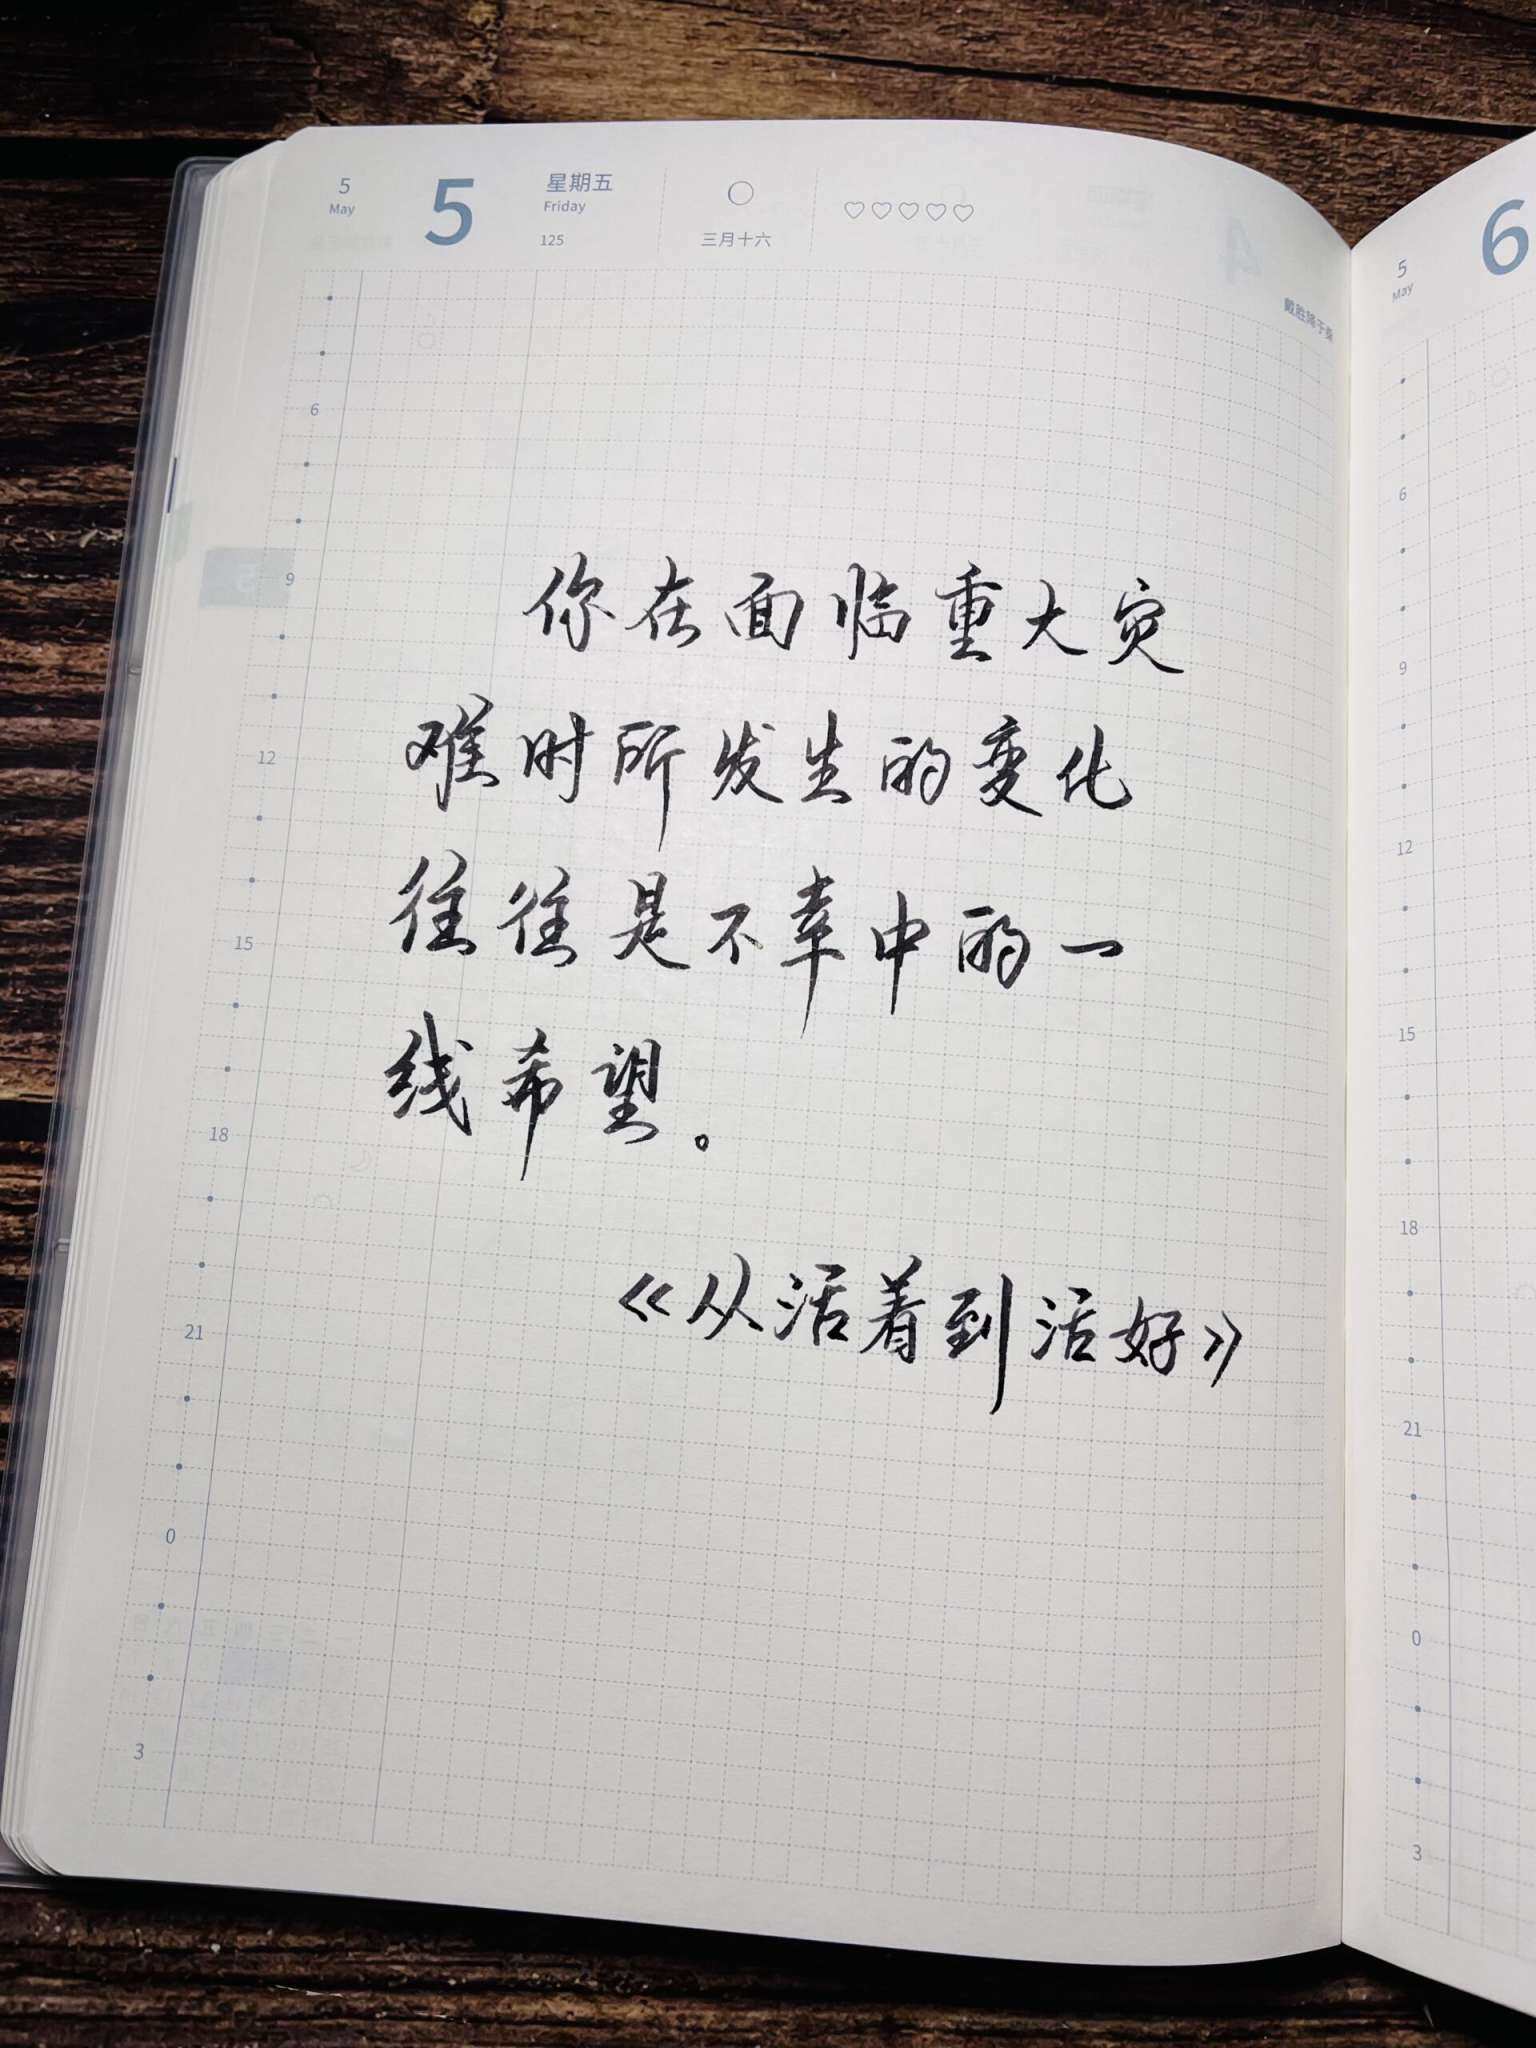 5
May
5
星期五
Friday
125
三月十六
戴胜降于桑
6
9
12
15
18
21
0
3
你在面临重大灾
难时所发生的变化
往往是不幸中的一
线希望。
《从活着到活好》
5
May
6
6
9
12
15
18
21
0
3